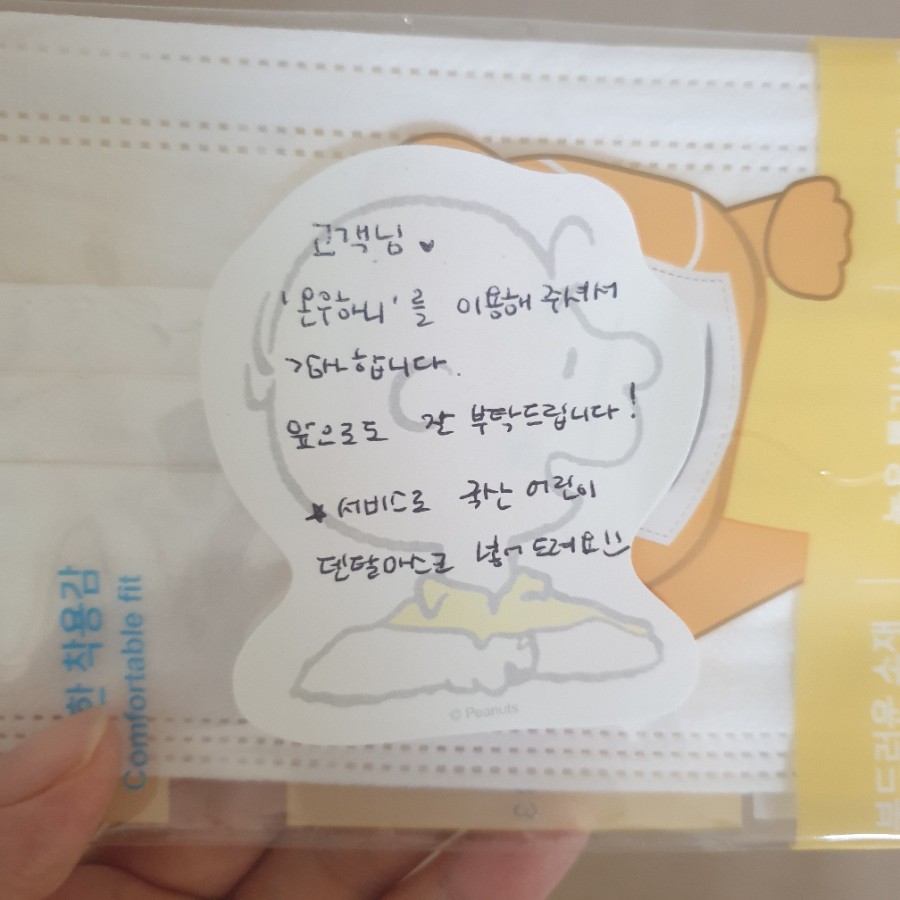 고객님 ♥
'온우해니'를 이용해 주셔서
감사합니다.
앞으로도 잘 부탁드립니다!
★ 서비스로 국산 어린이
덴탈마스크 넣어 드려요!!
© Peanuts
한 착용감
Comfortable fit
부드러운 소재